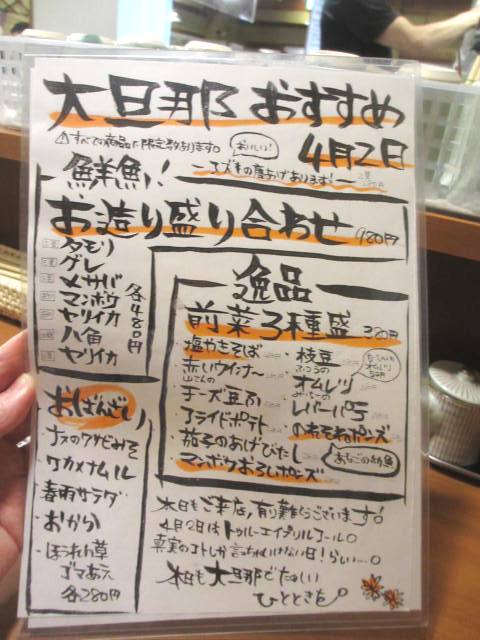 大旦那 おすすめ
4月2日
⚠すべての商品に限定数あります。
おいしい!
エズキの唐あげあります!
鮮魚!
お造り盛り合わせ 980円
タモリ
グレ
メサバ
マンボウ
ヤリイカ
八角
ヤリイカ
各480円
逸品
前菜3種盛 320円
・塩やきそば
・赤いウインナー
山さんの
・チーズ豆腐
・フライドポテト
・茄子のあげびたし
・マンボウおろしポンズ
・枝豆
ふつうの
・オムレツ
・レバーパテ
・のれそれポンズ
あなごの幼魚
おばんざい
・ナスのワサビみそ
・ワカメナムル
・春雨サラダ
・おから
・ほうれん草
ゴマあえ
各280円
本日もご来店有り難うございます。
4月2日はトゥルーエイプリルフール。
真実のコトしか言っちゃいけない日!らしい…。
本日も大旦那でたのしい
ひとときを。